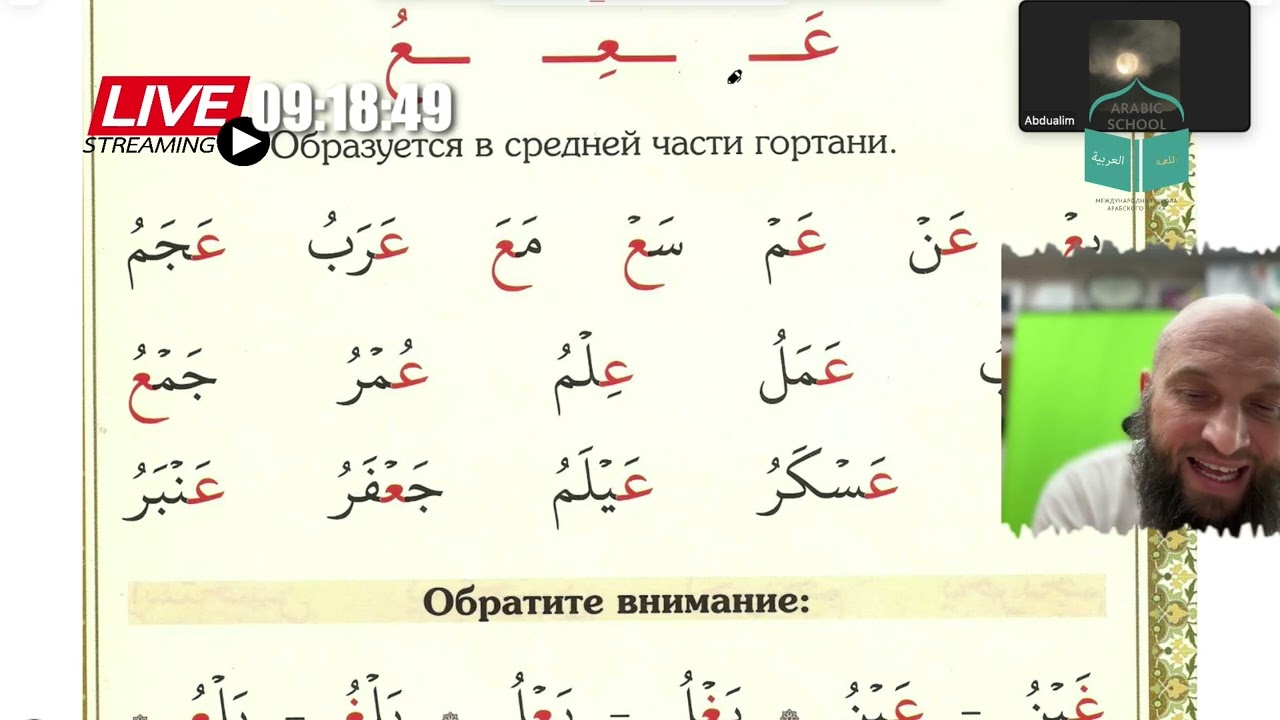 عَـ ـعِـ ـعُ
LIVE 09:18:49
STREAMING
Образуется в средней части гортани.
Abdualim
ARABIC
SCHOOL
العربية
МЕЖДУНАРОДНАЯ ШКОЛА
АРАБСКОГО ЯЗЫКА
عَنْ عَمْ سَعْ مَعَ عَرَبُ عَجَمُ
عَمَلُ عِلْمُ عُمْرُ جَمْعُ
عَسْكَرُ عَيْلَمُ جَعْفَرُ عَنْبَرُ
Обратите внимание:
غَيْنُ – عَيْنُ بَغْلُ – بَعْلُ بَلْغُ – بَلْعُ